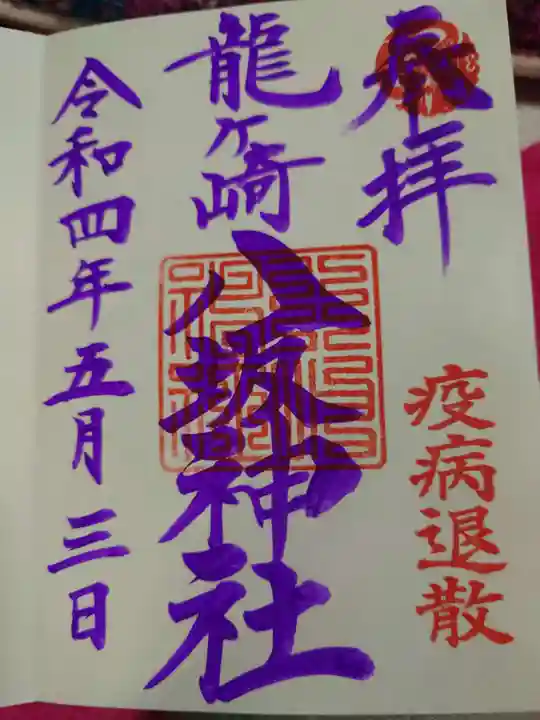 奉拝
疫病退散
龍ヶ崎
八坂神社
令和四年五月三日